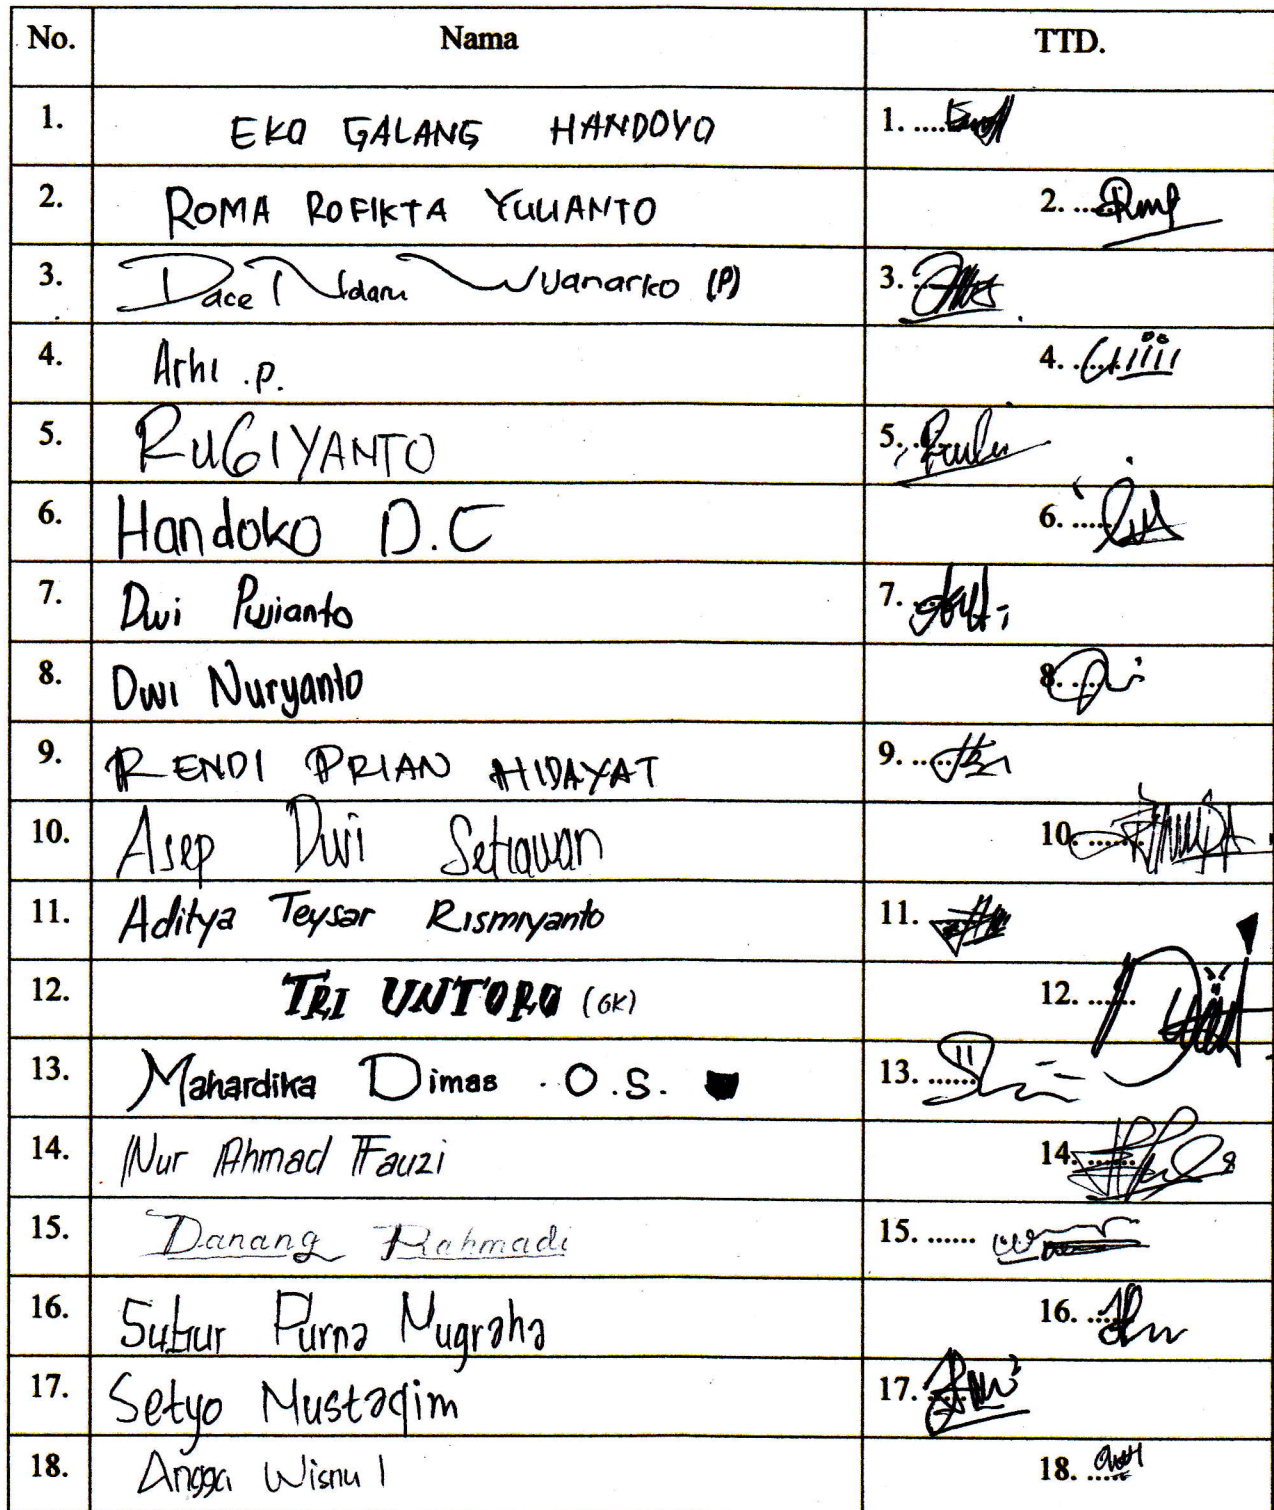 No. Nama TTD.
1. EKO GALANG HANDOYO 1. ......
2. ROMA ROFIKTA YULIANTO 2. ......
3. Dace Ndaru Wuanarko (P) 3. ......
4. Arhi .p. 4. ......
5. RUGIYANTO 5. ......
6. Handoko D.C 6. ......
7. Dwi Pujianto 7. ......
8. Dwi Nuryanto 8. ......
9. RENDI PRIAN HIDAYAT 9. ......
10. Asep Dwi Setiawan 10. ......
11. Aditya Teysar Rismiyanto 11.
12. TRI UNTORO (GK) 12. ......
13. Mahardika Dimas . O.S. 13. ......
14. Nur Ahmad Fauzi 14. ......
15. Danang Rahmadi 15. ......
16. Subur Purna Nugraha 16. ......
17. Setyo Mustaqim 17. ......
18. Angga Wisnu I 18. ......